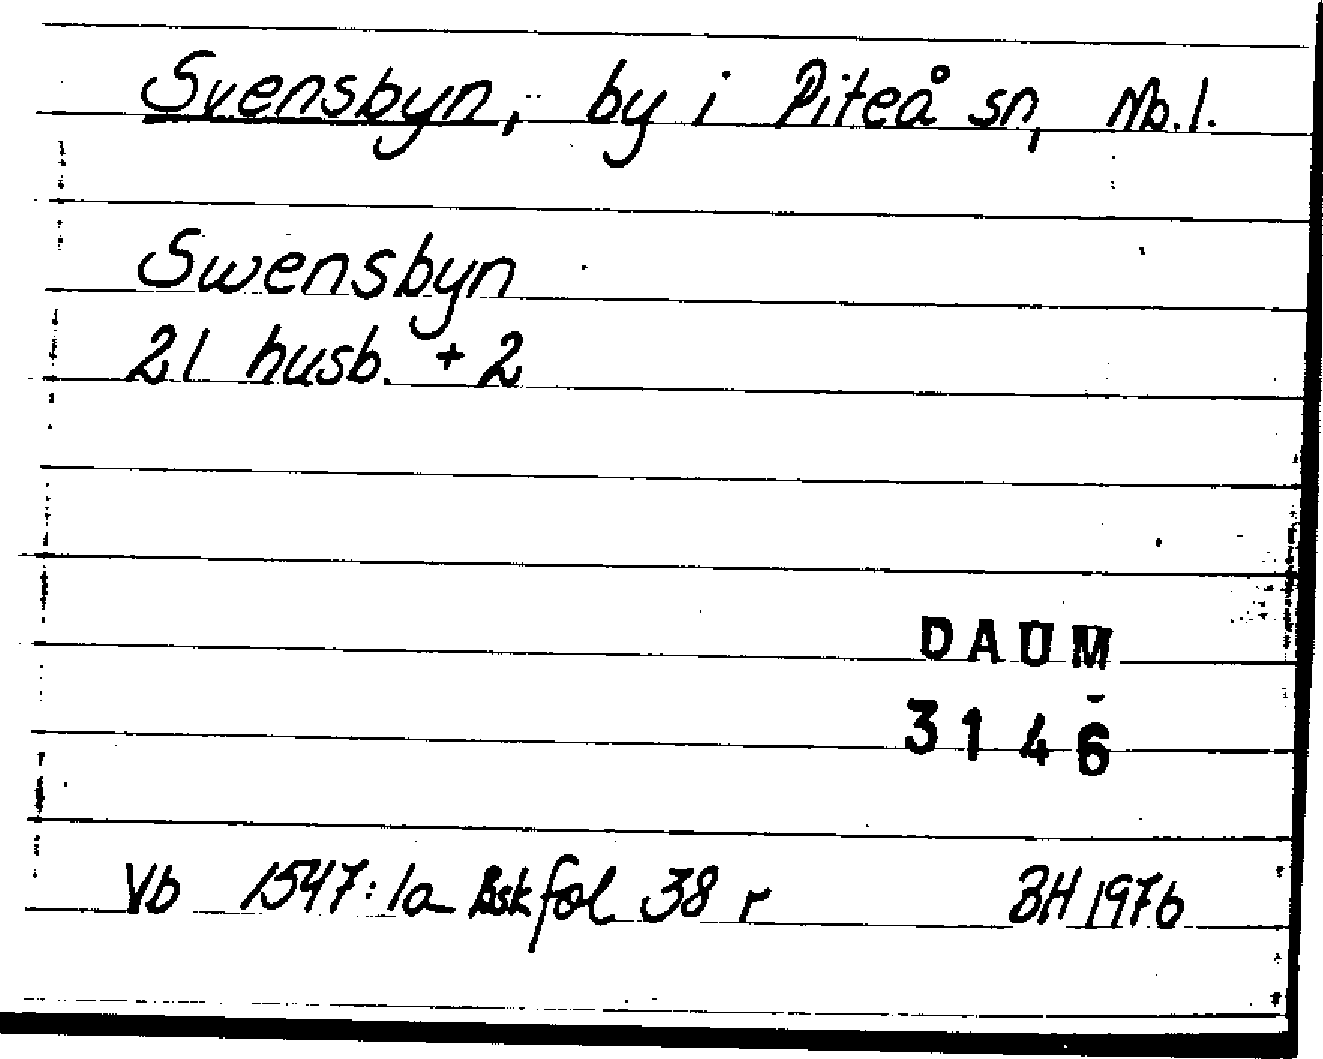 Svensbyn, by i Piteå sn, Nb.l.
Swensbyn
21 husb. + 2
DAUM
3146
Vb 1547:1a Bsk fol 38 r BH 1976